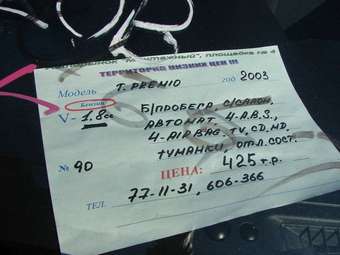 "Монтажный", площадка № 4
ТЕРРИТОРИЯ НИЗКИХ ЦЕН !!!
Модель T. PREMIO год 2003
Бензин Б/ПРОБЕГА, С/САЛОН,
V- 1,8 cc АВТОМАТ. 4-A.B.S.,
4-AIRBAG, TV, CD, MD,
№ 90 ТУМАНКИ, ОТЛ. СОСТ.
ЦЕНА: 425 т.р.
ТЕЛ. 77-11-31, 606-366